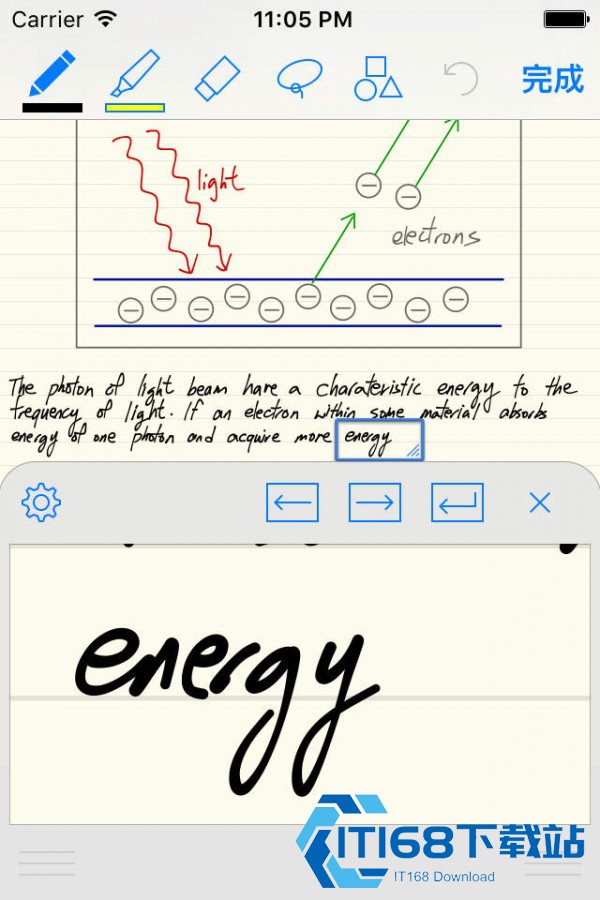 Carrier 11:05 PM
完成
light
electrons
The photon of light beam have a charateristic energy to the
frequency of light. If an electron within some material absorbs
energy of one photon and acquire more energy
energy
ITI68下载站
IT168 Download